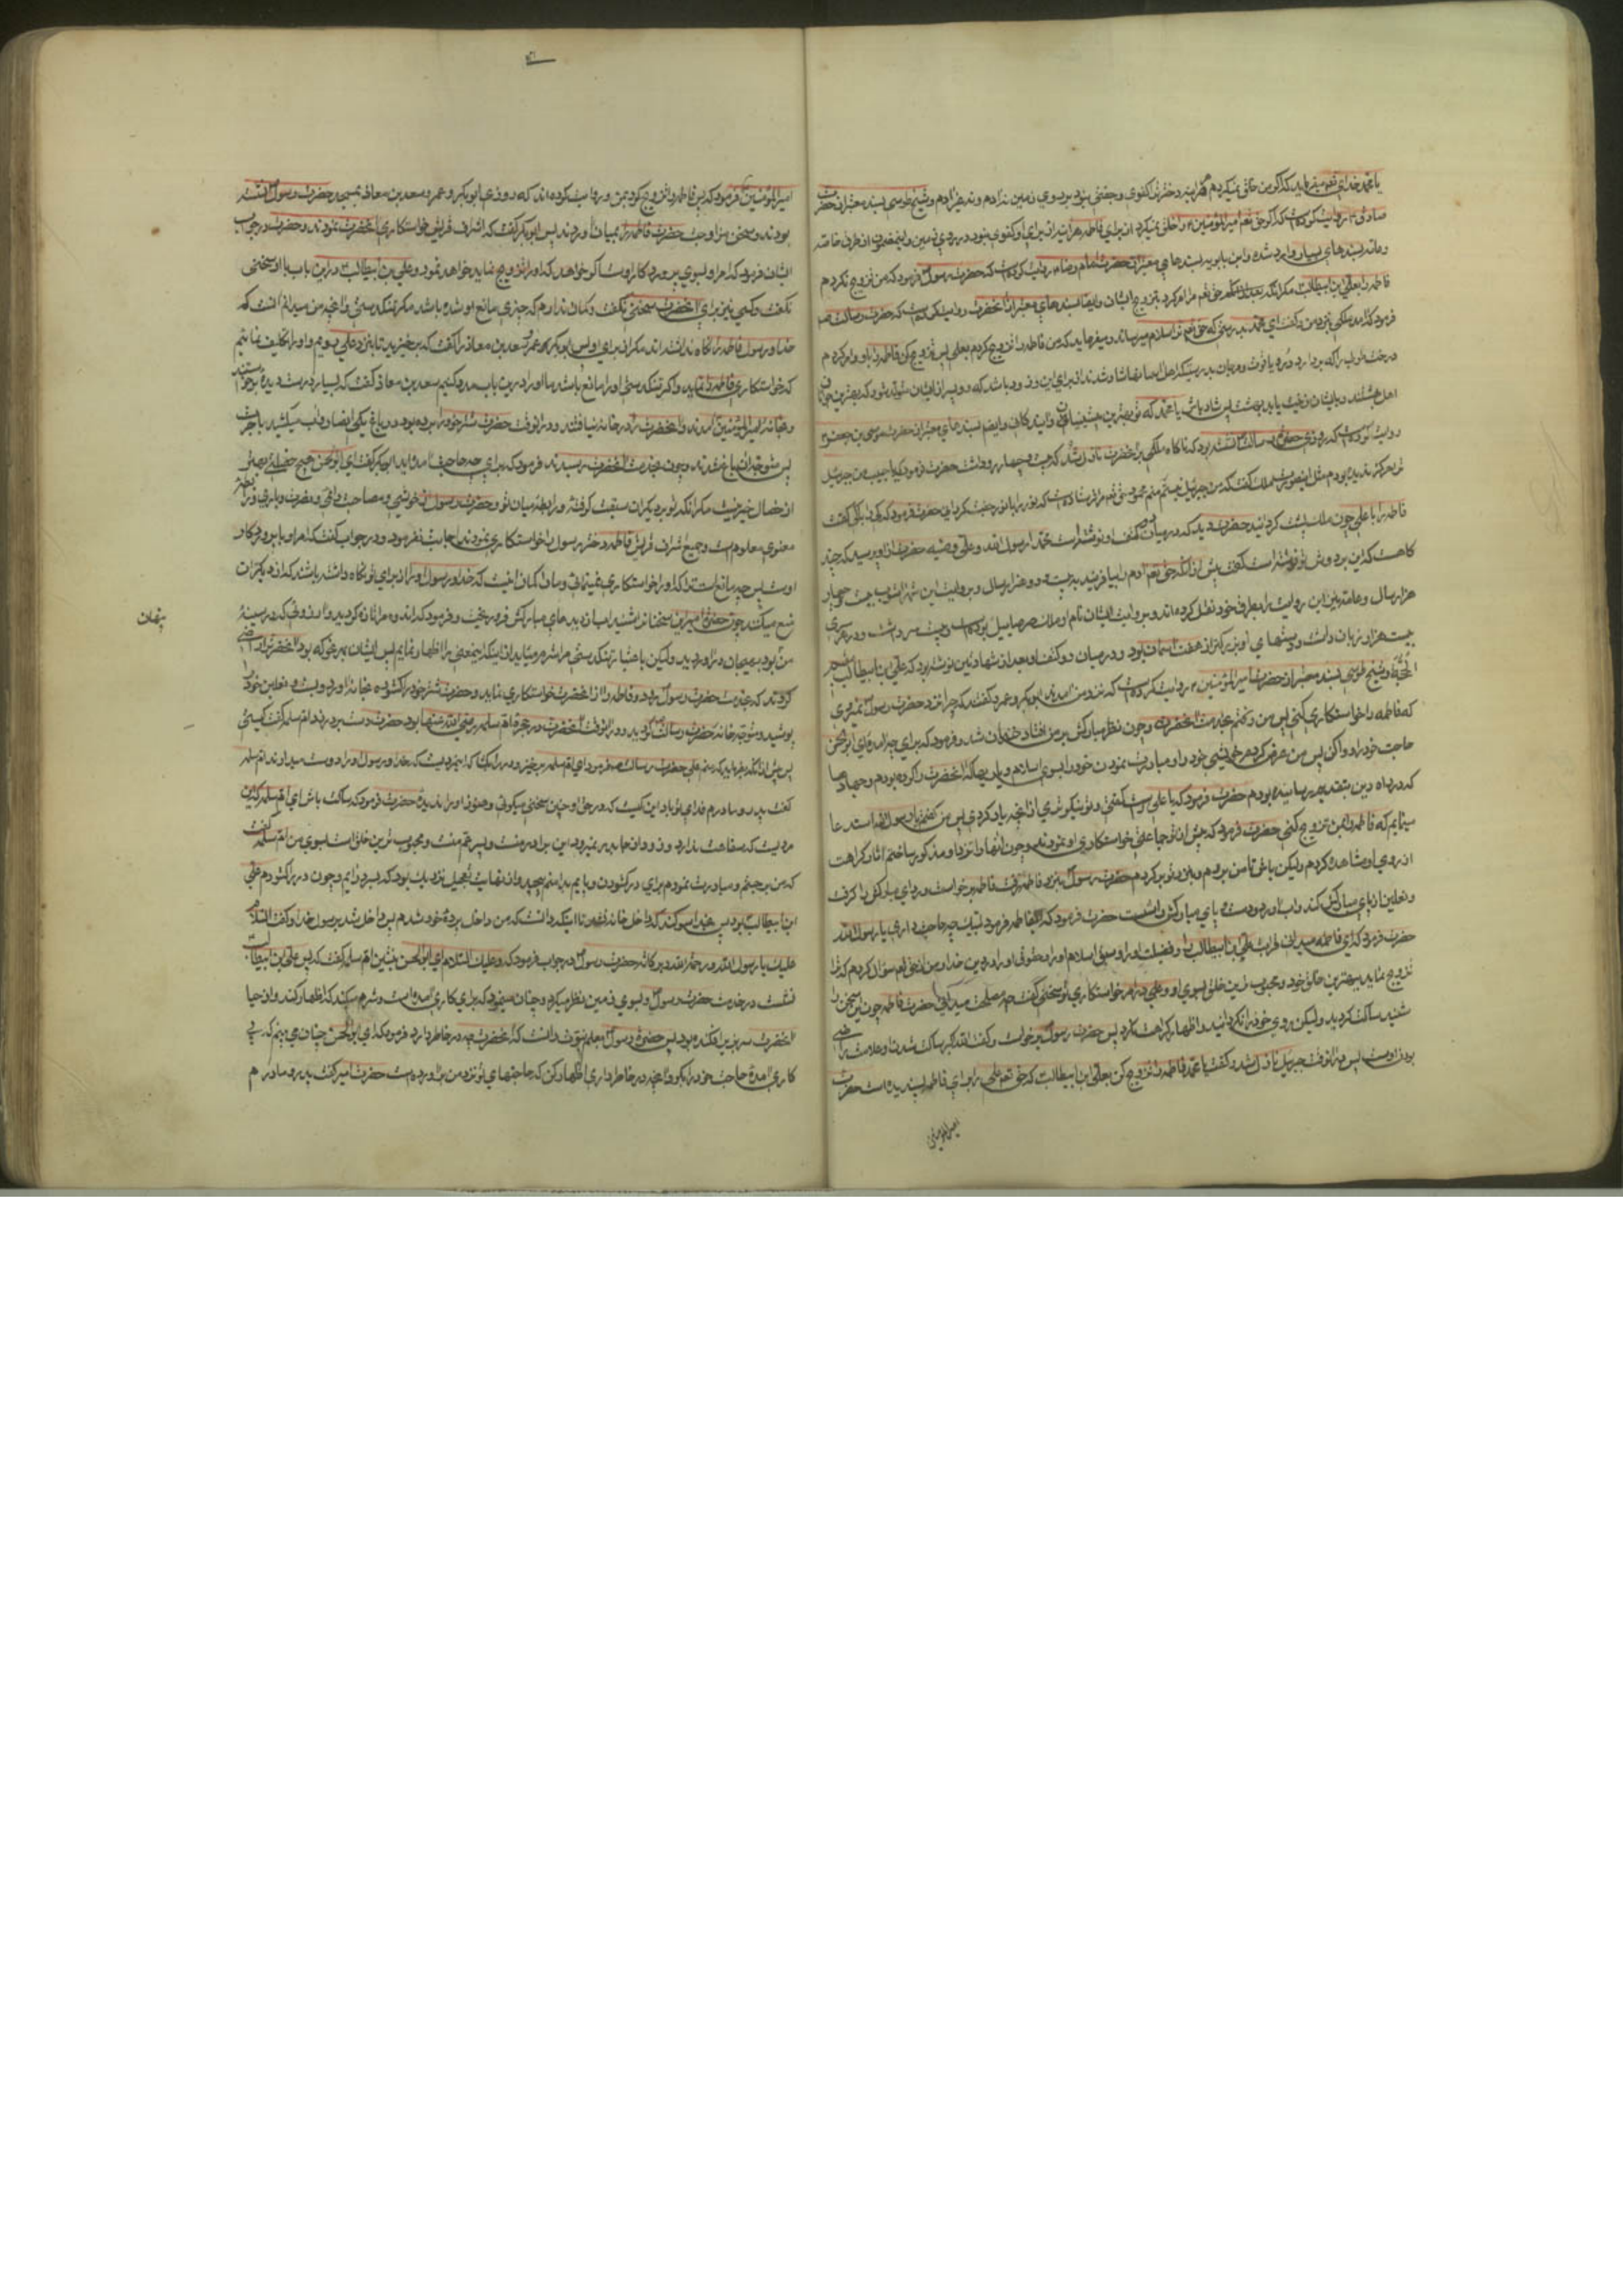 یا محمد خدای تعم میفرماید که اگر من خلق نمیکردم را برای دختر تو فاطمه کفوی و جفتی نبود بر روی زمین از آدم و غیر آدم و شیخ طوسی بسند معتبر از حضرت
صادق ع روایت کرده است که اگر حق تعم امیرالمؤمنین را خلق نمیکرد از برای فاطمه هر آینه از برای او کفوی نبود در روی زمین و این مضمون از طرق خاصه
و عامه بسندهای بسیار وارد شده و ابن بابویه بسندهای معتبر از حضرت امام رضا ع روایت کرده است که حضرت رسول فرمود که من تزویج نکردم
فاطمه را بعلی بن ابیطالب مگر بعد از آنکه حق تعم مرا امر کرد بتزویج ایشان و ایضا بسندهای معتبر از آنحضرت روایت کرده است که حضرت رسالت ص
فرمود که آمد ملکی بنزد من و گفت ای محمد بدرستی که حق تعم ترا سلام میرساند و میفرماید که من فاطمه را تزویج کردم بعلی پس تزویج کن فاطمه را باو و امر کردم
درخت طوبی را که بر دارد در و یاقوت و مرجان بدرستیکه اهل آسمانها شاد شدند از برای این و زود باشد که دو پسر از ایشان متولد شود که بهترین جوانان
اهل بهشتند و بایشان زینت یابد بهشت پس شاد باش یا محمد که تو بهترین پیشینیان و آیندگانی و ایضا بسندهای معتبر از حضرت موسی بن جعفر ع
روایت کرده است که روزی حضرت رسالت نشسته بود که ناگاه ملکی بر آنحضرت نازل شد که بیست و چهار رو داشت حضرت فرمود که ای حبیب من جبرئیل
ترا هرگز ندیده بودم مثل این صورت ملک گفت که من جبرئیل نیستم منم محمود حق تعم مرا فرستاده است که نور را با نور جفت گردانی حضرت فرمود که کی را با کی گفت
فاطمه را با علی چون ملک پشت گردانید حضرت دید که در میان دو کتف او نوشته است محمد رسول الله و علی وصیه حضرت از او پرسید که چند
گاهست که این بر دوش تو نوشته است گفت پیش از آنکه حق تعم آدم را بیافریند به بیست و دو هزار سال و بروایت ابن شهرآشوب بیست و چهار
هزار سال و عامه نیز این روایت را بطرق خود نقل کرده‌اند و بروایت ایشان نام او ملک صرصائیل بوده است و بیست سر داشت و در هر سری
بیست هزار زبان داشت و دستهای او بزرگتر از هفت آسمان بود و در میان دو کتف او بعد از شهادتین نوشته بود که علی بن ابیطالب مقیم
الحجة و شیخ طوسی بسند معتبر از حضرت امیرالمؤمنین ع روایت کرده است که نزد من آمدند ابوبکر و عمر و گفتند که چرا نزد حضرت رسول نمیروی
که فاطمه را خواستگاری کنی پس من رفتم بخدمت آنحضرت و چون نظر مبارکش بر من افتاد خندان شد و فرمود که برای چه آمده‌ای ابوالحسن
حاجت خود را روا کن پس من عرض کردم خویشی خود را و مبادرت نمودن خود را بسوی اسلام و یاریها که آنحضرت را کرده بودم و جهادها
که در راه دین بتقدیم رسانیده بودم حضرت فرمود که یا علی راست گفتی و تو نیکوتری از آنچه یاد کردی پس من گفتم یا رسول الله استدعا
مینمایم که فاطمه را بمن تزویج کنی حضرت فرمود که پیش از تو جماعتی خواستگاری او نمودند و چون آنها را نزد او مذکور ساختم آثار کراهت
از روی او مشاهده کردم ولیکن باش تا من بروم و بنزد تو برگردم حضرت رسول بنزد فاطمه رفت فاطمه برخاست و ردای مبارکش را گرفت
و نعلین از پای مبارکش کند و آب آورد و دست و پای مبارکش را شست حضرت فرمود که ای فاطمه فرمود لبیک چه حاجت داری یا رسول الله
حضرت فرمود که ای فاطمه میدانی قرابت علی بن ابیطالب را و فضیلت او را و سبق اسلام او را و من از حق تعم سؤال کردم که ترا
تزویج نماید ببهترین خلق خود و محبوبترین خلق بسوی او و علی در امر خواستگاری تو سخنی گفت چه مصلحت میدانی حضرت فاطمه چون این سخن را
شنید ساکت گردید ولیکن روی خود را نگردانید و اظهار کراهت نکرد پس حضرت رسول برخاست و گفت الله اکبر ساکت شدن او علامت راضی
بودن اوست پس در آنوقت جبرئیل نازل شد و گفت یا محمد فاطمه را تزویج کن بعلی بن ابیطالب که حق تعم علی را برای فاطمه پسندیده است حضرت
امیرالمؤمنین
امیرالمؤمنین فرمود که پس فاطمه را تزویج کرد بمن و روایت کرده‌اند که روزی ابوبکر و عمر و سعد بن معاذ بمسجد حضرت رسول نشسته
بودند و سخن مزاوجت حضرت فاطمه را بمیان آوردند پس ابوبکر گفت که اشراف قریش خواستگاری آنحضرت نمودند و حضرت در جواب
ایشان فرمود که امر او بسوی پروردگار اوست اگر خواهد که او را تزویج نماید خواهد نمود و علی بن ابیطالب در این باب با او سخنی
نگفت و کسی نیز برای آنحضرت سخنی نگفت و گمان ندارم که چیزی مانع او شده باشد مگر تنگدستی و آنچه من میدانم آنست که
خدا و رسول فاطمه را نگاه نداشته‌اند مگر از برای او پس ابوبکر با عمر و سعد بن معاذ گفت که برخیزید تا بنزد علی برویم و او را تکلیف نمائیم
که خواستگاری فاطمه نماید و اگر تنگدستی او را مانع باشد ما او را در این باب مدد کنیم سعد بن معاذ گفت که بسیار درست دیده برخواستند
و بخانه امیرالمؤمنین آمدند و آنحضرت را در خانه نیافتند و در آنوقت حضرت شتر خود را برده بود و در باغ یکی از انصار آب میکشید باجرت
پس متوجه آن باغ شدند و چون بخدمت آنحضرت رسیدند فرمود که برای چه حاجت آمده‌اید ابوبکر گفت ای ابوالحسن هیچ خصلتی
از خصال خیر نیست مگر آنکه تو بر دیگران سبقت گرفته و رابطه میان تو و حضرت رسول از خویشی و مصاحبت دائمی و نصرت و یاری و
معنوی معلوم است و جمیع اشراف قریش فاطمه دختر رسول را خواستگاری نمودند اجابت نفرمود و در جواب گفت که امر او با پروردگار
اوست پس چه مانع است ترا که او را خواستگاری نمیفرمائی و ما را گمان آنست که خدا و رسول او را از برای تو نگاه داشته باشند که از دیگران
منع میکنند چون حضرت امیر این سخنانرا شنید آب از دیده‌های مبارکش فرو ریخت و فرمود که اندوه مرا تازه کردید و آرزوئی که در سینه
پنهان
من بود بهیجان در آوردید ولیکن باعتبار تنگدستی مرا شرم میآید از اینکه این معنی را اظهار نمایم پس ایشان بهر نحو که بود آنحضرت را راضی
کردند که بخدمت حضرت رسول برود و فاطمه را از آنحضرت خواستگاری نماید و حضرت شتر خود را گشود بخانه آورد و بست و نعلین خود را
پوشید و متوجه خانه حضرت رسالت گردید و در آنوقت آنحضرت در حجره ام سلمه رضی الله عنها بود حضرت دست بر در زد ام سلمه گفت کیستی
پس پیش از آنکه بفرماید که منم علی حضرت رسالت ص فرمود ای ام سلمه برخیز و در را بگشا که این مردیست که خدا و رسول او را دوست میدارند ام سلمه
گفت پدر و مادرم فدای تو باد این کیست که در حق او چنین سخنی میگوئی و هنوز او را ندیده حضرت فرمود که ساکت باش ای ام سلمه که این
مردیست که سفاهت ندارد و زود از جا بدر نمیرود این برادر منست و پسر عم منست و محبوب ترین خلق است بسوی من ام سلمه گفت
که من برجستم و مبادرت نمودم برای در گشودن و پایم بدامنم پیچید و از نهایت تعجیل نزدیک بود که بسر درآیم و چون در را گشودم علی
ابن ابیطالب بود پس بخدا سوگند که داخل خانه نشد تا اینکه دانست که من داخل پرده خود شدم پس داخل شد بر رسول خدا و گفت السلام
علیک یا رسول الله و رحمة الله و برکاته حضرت رسول در جواب فرمود که و علیک السلام ای ابوالحسن بنشین ام سلمه گفت که پس علی بن ابیطالب
نشست در خدمت حضرت رسول و بسوی زمین نظر میکرد و چنان مینمود که برای کاری آمده است و شرم میکند که اظهار کند و از حیا
آنحضرت سر بزیر افکنده بود پس حضرت رسول بعلم نبوت دانست که آنحضرت چه در خاطر دارد فرمود که ای ابوالحسن چنان می بینم که پی
کاری آمده حاجت خود را بگو و آنچه در خاطر داری اظهار کن که حاجتهای تو نزد من برآورده است حضرت امیر گفت پدر و مادرم